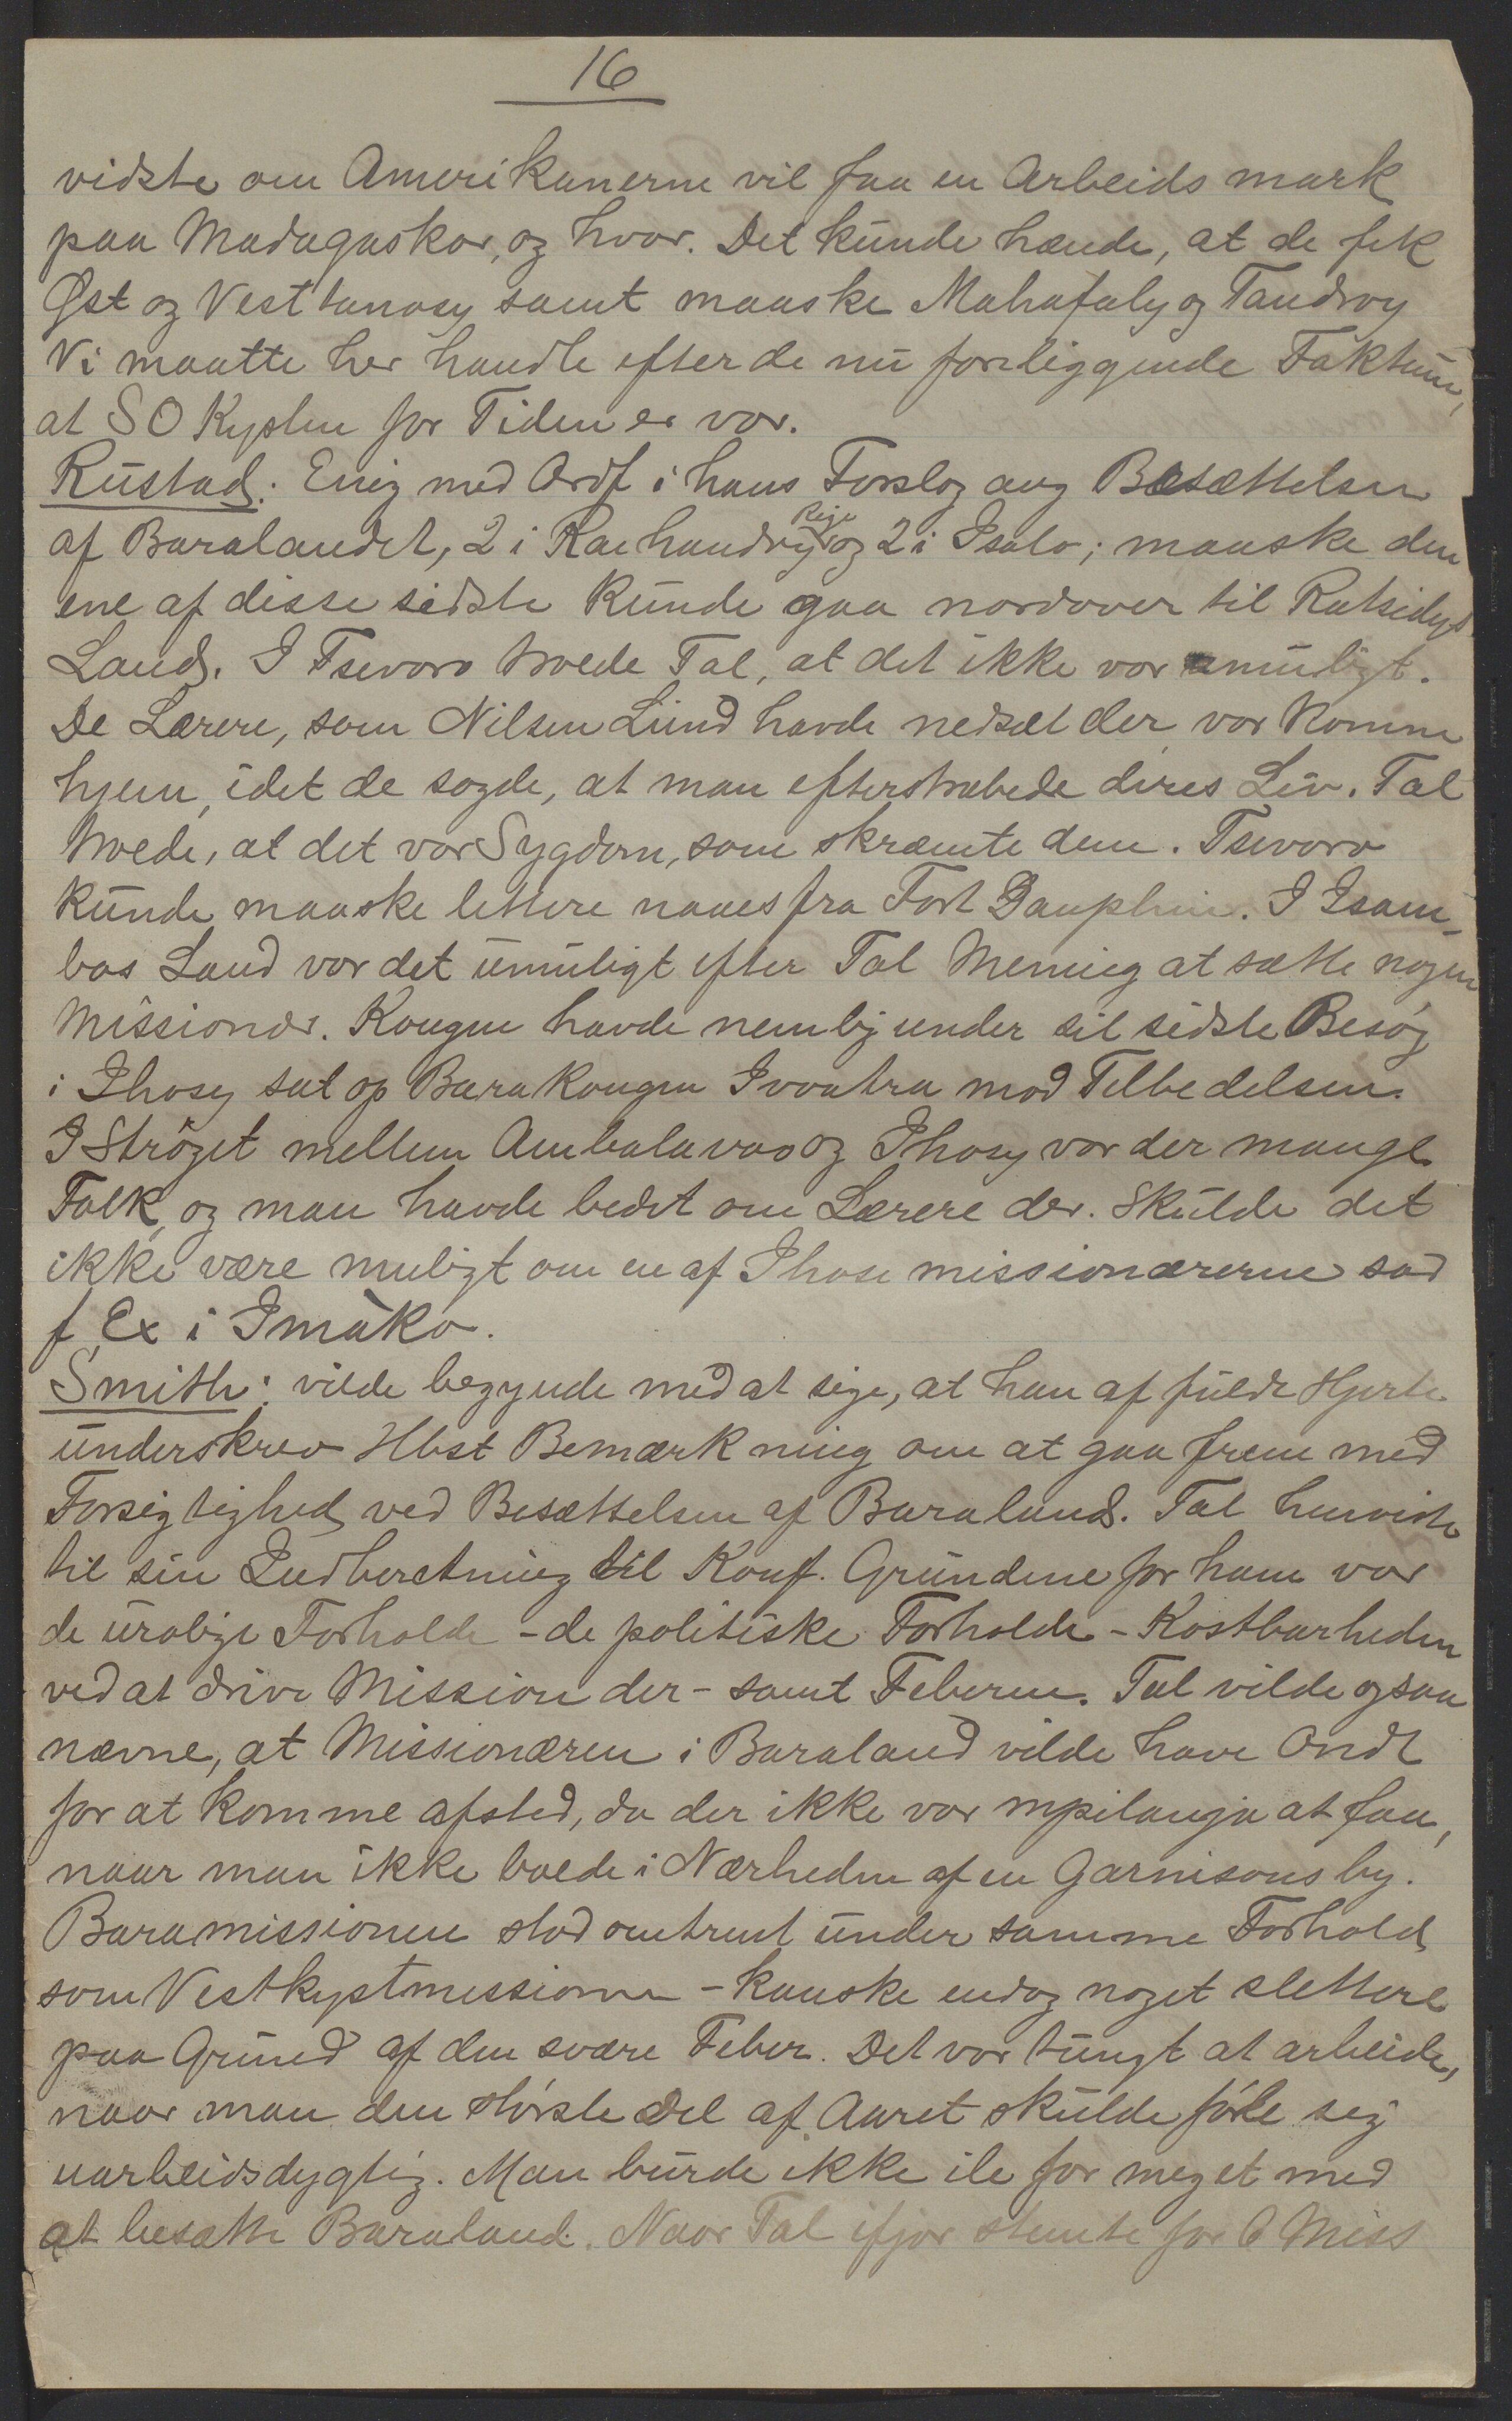 16
vidste om Amerikanerne vil faa en Arbeids mark
paa Madagaskar, og hvor. Det kunde hænde, at de fik
Øst og Vest tanosy samt maaske Mahafaly og Tandroy
Vi maatte her handle efter de nu foreliggende Faktum,
at SO Kysten for Tiden er vor.
Rustad: Enig med Ordf i hans Forslag ang Besættelsen
af Baralandet, 2 i Raehandry Rige og 2 i Isalo; maaske den
ene af disse sidste kunde gaa nordover til Ratsidys
Land. I Tsevoro troede Tal, at det ikke var umuligt.
De Lærere, som Nilsen Lund havde nedsat der var komne
hjem, idet de sagde, at man efterstræbede deres Liv. Tal
troede, at det var Sygdom, som skræmte dem. Tsevoro
kunde maaske lettere naaes fra Fort Dauphin. I Isam-
bos Land var det umuligt efter Tal Mening at sætte nogen
Missionær. Kongen havde nemlig under sit sidste Besøg
i Ihosy sat op Bara Kongen Ivoatra mod Tilbedelsen.
I Strøget mellem Ambalavao og Ihosy var der mange
Folk, og man havde bedet om Lærere der. Skulde det
ikke være muligt om en af Ihosi missionærerne sad
f Ex i Imàko.
Smith: vilde begynde med at sige, at han af fulde Hjerte
underskrev Hbst Bemærkning om at gaa frem med
Forsigtighed ved Besættelsen af Baraland. Tal henviste
til sin Indberetning til Konf. Grundene for ham var
de urolige Forholde - de politiske Forholde - Kostbarheden
ved at drive Mission der - samt Feberen. Tal vilde ogsaa
nævne, at Missionæren i Baraland vilde have Ondt
for at komme afsted, da der ikke var mpilanja at faa,
naar man ikke boede i Nærheden af en Garnisons by.
Baramissionen stod omtrent under samme Forhold
som Vestkystmissionen - kanske endog noget slettere
paa Grund af den svære Feber. Det var tungt at arbeide,
naar man den største Del af Aaret skulde føle sig
uarbeidsdygtig. Man burde ikke ile for meget med
at besætte Baraland. Naar Tal ifjor stemte for 6 Miss